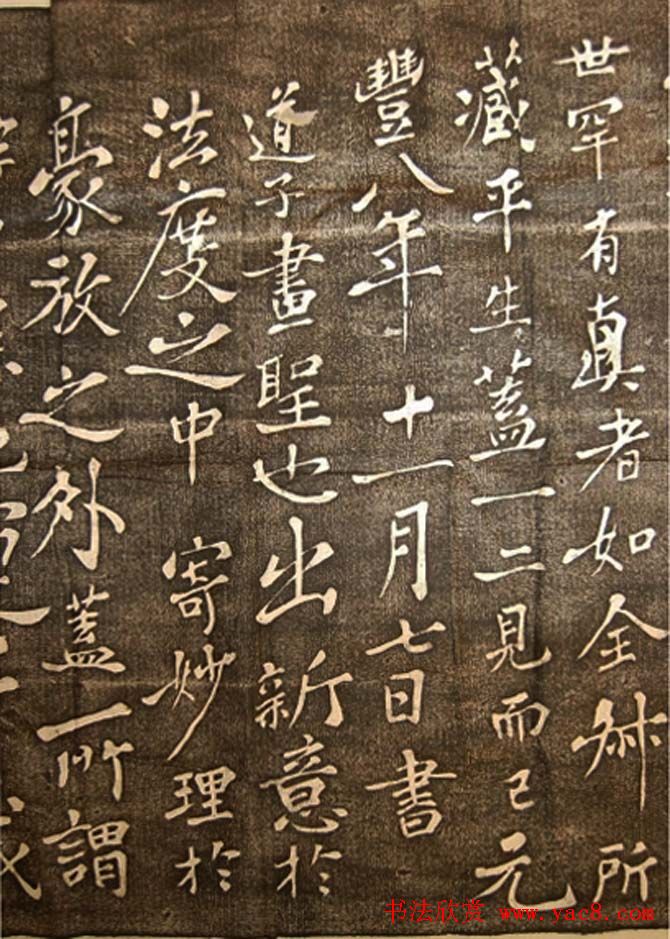 世罕有真者如全叔所
藏平生蓋一二見而已元
豐八年十一月七日書
道子畫聖也出新意於
法度之中寄妙理於
豪放之外蓋所謂
书法欣赏 www.yac8.com